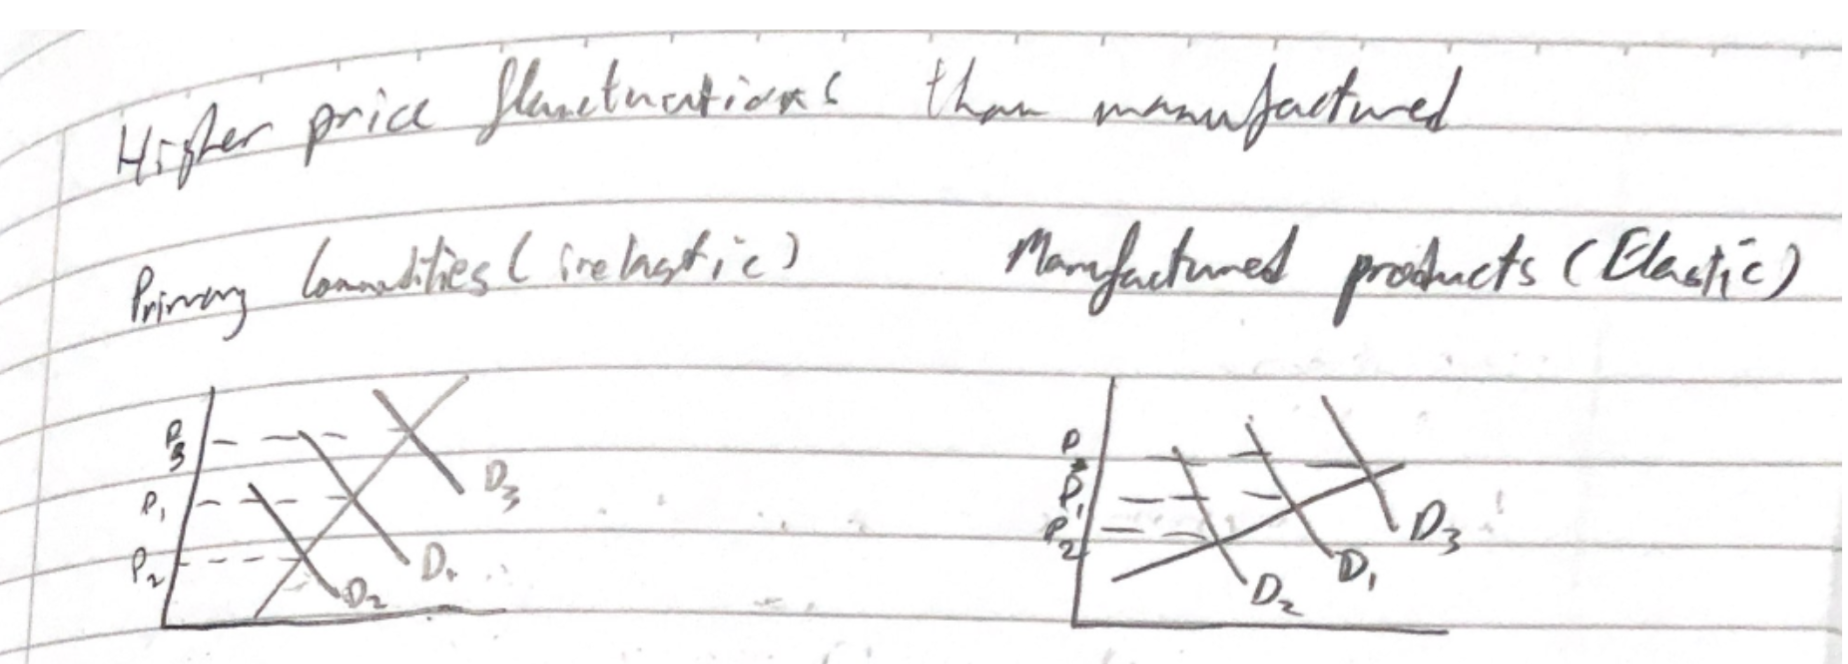 Higher price fluctuations than manufactured
Primary Commodities (inelastic)
Manufactured products (Elastic)
P3
P1
P2
D3
D1
D2
P3
P1
P2
D3
D1
D2